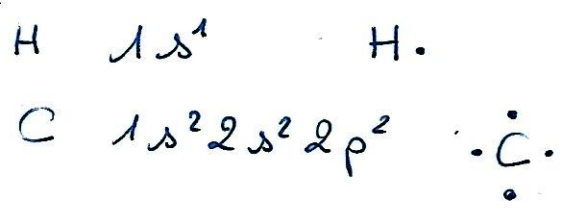 H 1s¹ H·
C 1s²2s²2p² ·C·